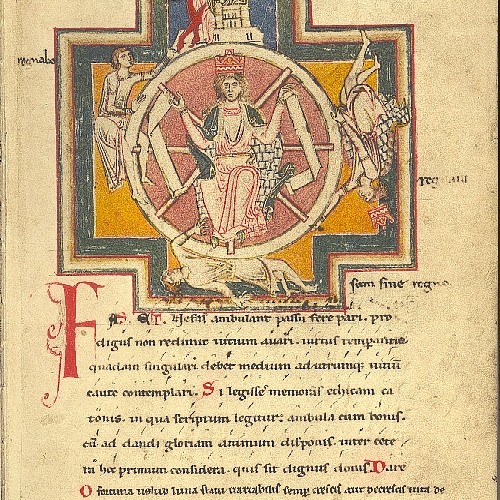 regnabo
regnaui
sum sine regno
FAS ET Nefas ambulant passu fere pari. pro
digus non redimit uitium auari. uirtus temperantie
quadam singulari debet medium ad utrumque uitium
caute contemplari. Si legisse memoras ethicam ca
tonis. in qua scriptum legitur. ambula cum bonis.
cum ad dandi gloriam animum disponis. inter cete
ra hoc primum considera. quis sit dignus donis. Dare
O fortuna uelud luna statu uariabilis semper crescis aut decrescis uita de